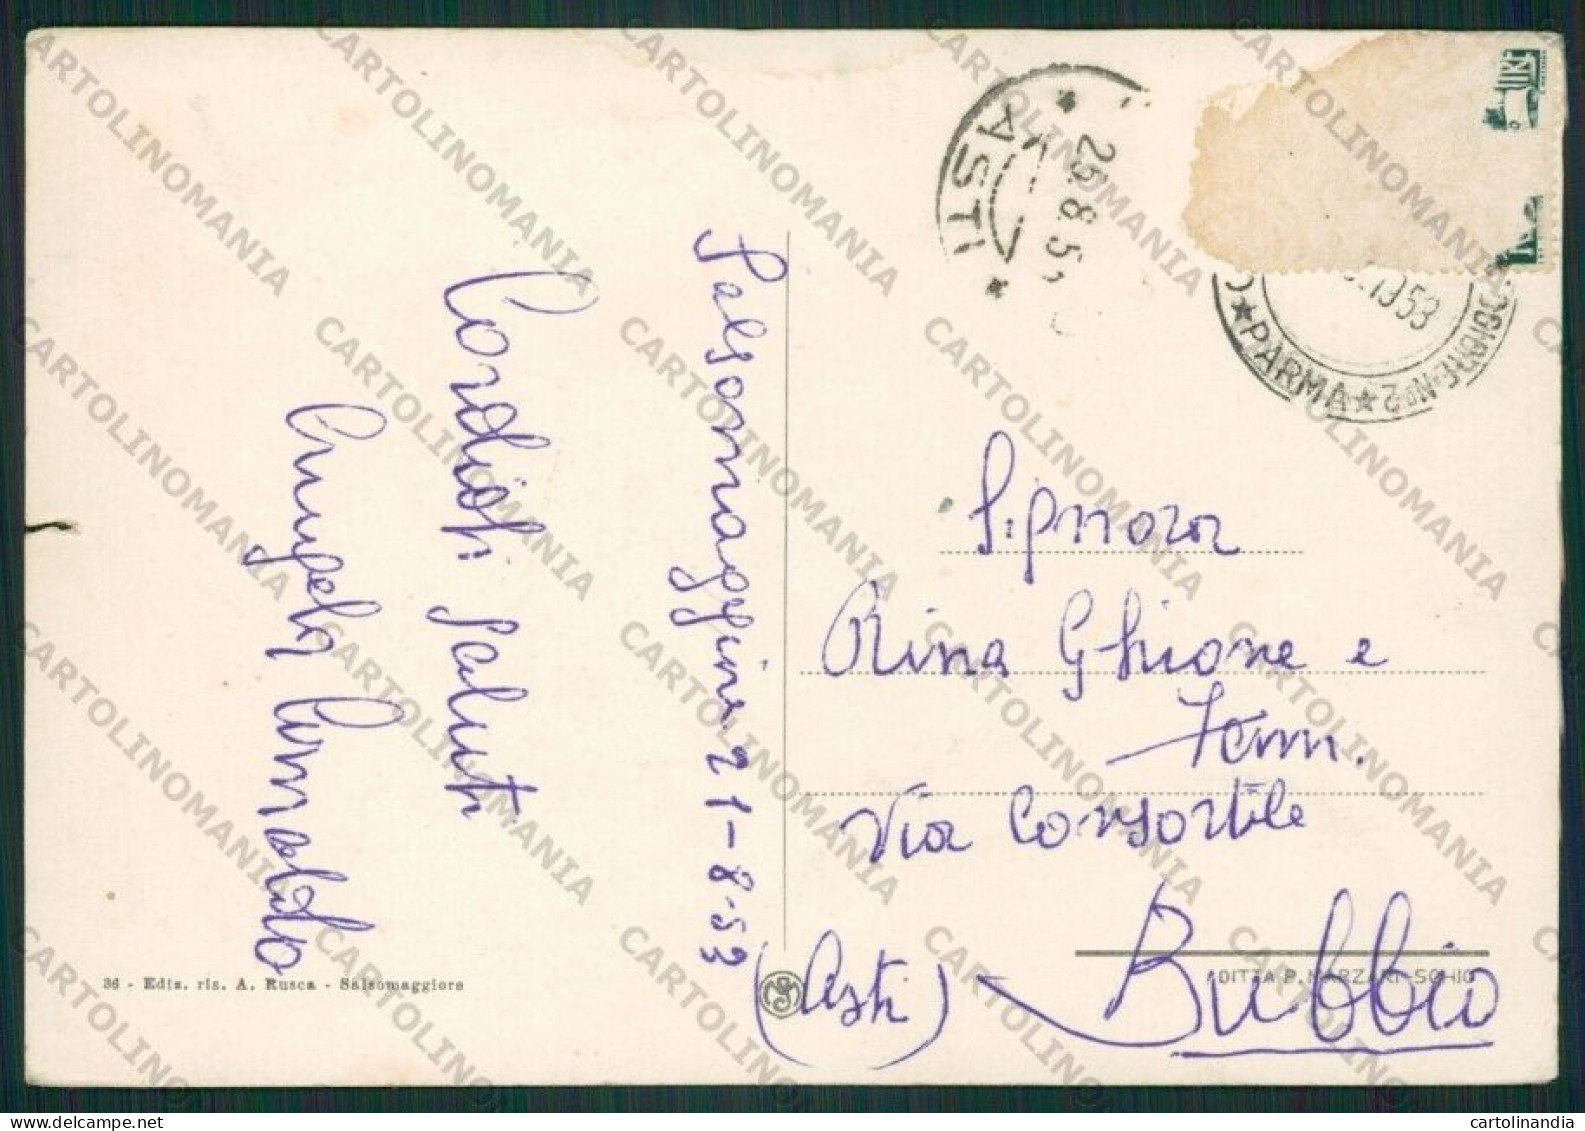 Salsomaggiore 21-8-53
Cordiali saluti
Angela Corraldo
36 - Ediz. ris. A. Rusca - Salsomaggiore
ASTI
26.8.53
LIRE
1953
PARMA
N° 2
Signora
Rina Ghione e
Fam.
Via Consortile
Bubbio
(Asti)
DITTA P. MARZARI-SCHIO
CARTOLINOMANIA
cartolinandia